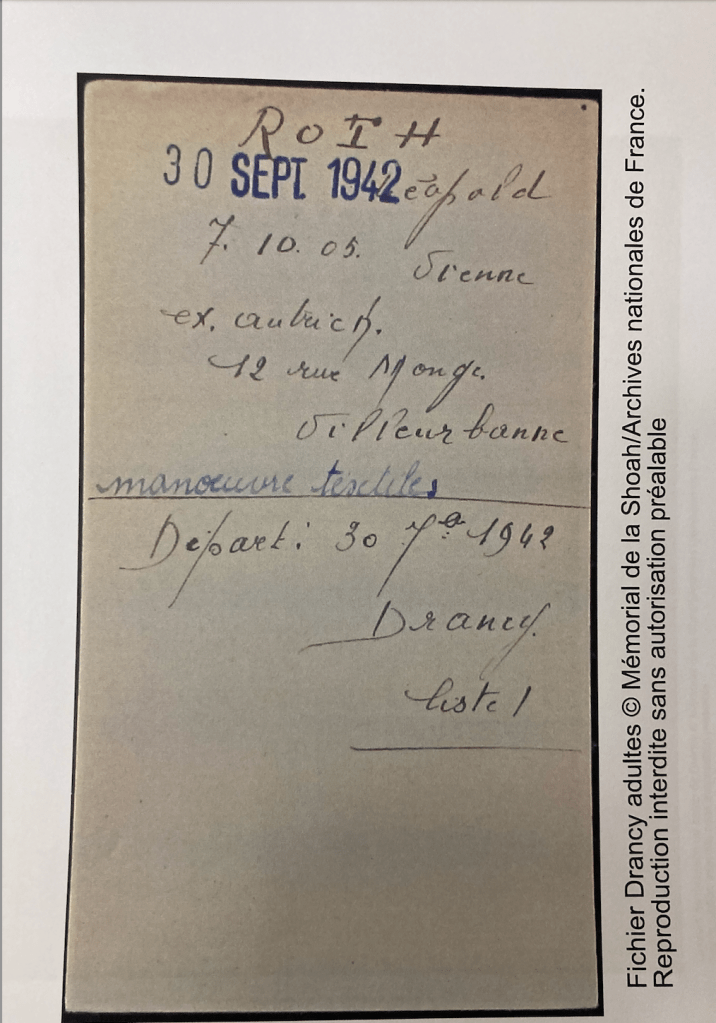 ROTH
30 SEPT 1942
Léopold
7. 10. 05. Vienne
ex. autrich.
12 rue Monge
Villeurbanne
manœuvre textiles
Départ: 30 7bre 1942
Drancy
liste 1
Fichier Drancy adultes © Mémorial de la Shoah/Archives nationales de France.
Reproduction interdite sans autorisation préalable